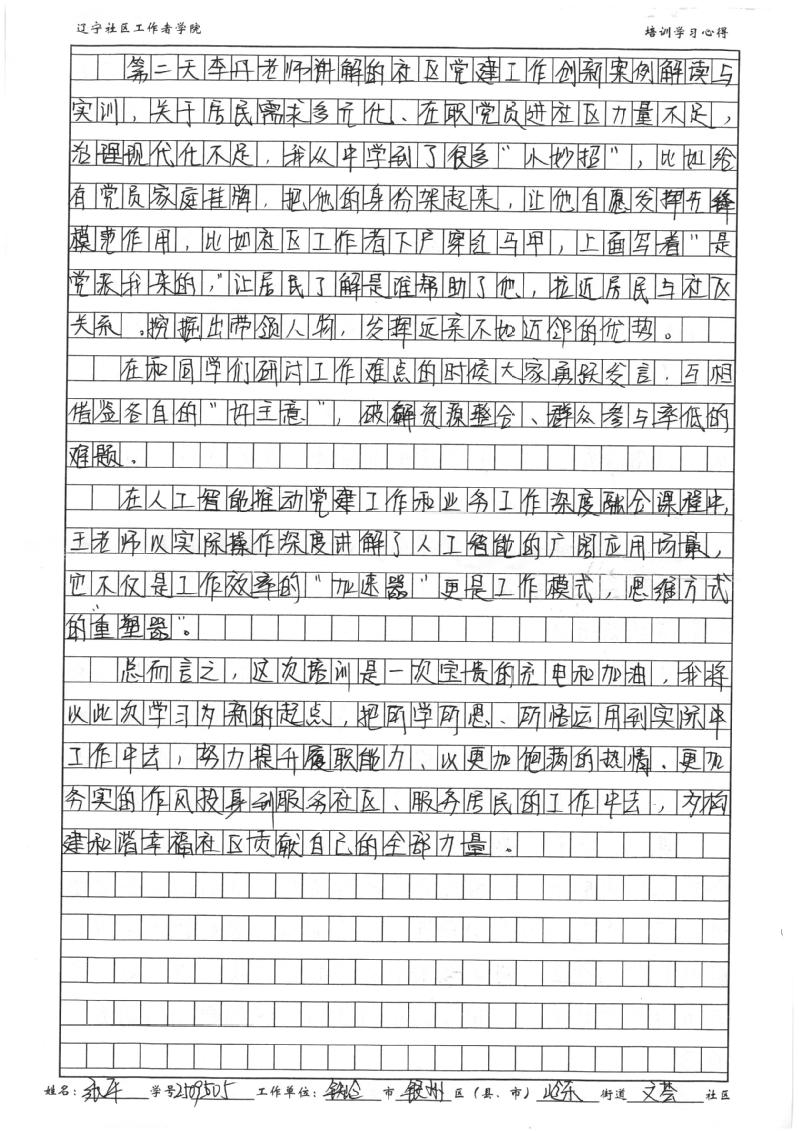 辽宁社区工作者学院
培训学习心得
第二天李丹老师讲解的社区党建工作创新案例解读与
实训，关于居民需求多元化、在职党员进社区力量不足，
治理现代化不足，我从中学到了很多“小妙招”，比如给
有党员家庭挂牌，把他的身份架起来，让他自愿发挥先锋
模范作用，比如社区工作者下户穿红马甲，上面写着“是
党派我来的，”让居民了解是谁帮助了他，拉近居民与社区
关系。挖掘出带领人物，发挥远亲不如近邻的优势。
在和同学们研讨工作难点的时候大家勇跃发言，互相
借鉴各自的“好主意”，破解资源整合、群众参与率低的
难题。
在人工智能推动党建工作和业务工作深度融合课程中，
王老师以实际操作深度讲解了人工智能的广阔应用场景，
它不仅是工作效率的“加速器”更是工作模式，思维方式
的“重塑器”。
总而言之，这次培训是一次宝贵的充电和加油，我将
以此次学习为新的起点，把所学所思、所悟运用到实际中
工作中去，努力提升履职能力、以更加饱满的热情、更加
务实的作风投身到服务社区、服务居民的工作中去，为构
建和谐幸福社区贡献自己的全部力量。
姓名： 学号2509505 工作单位：铁岭 市 银州 区（县、市） 岭东 街道 文荟 社区